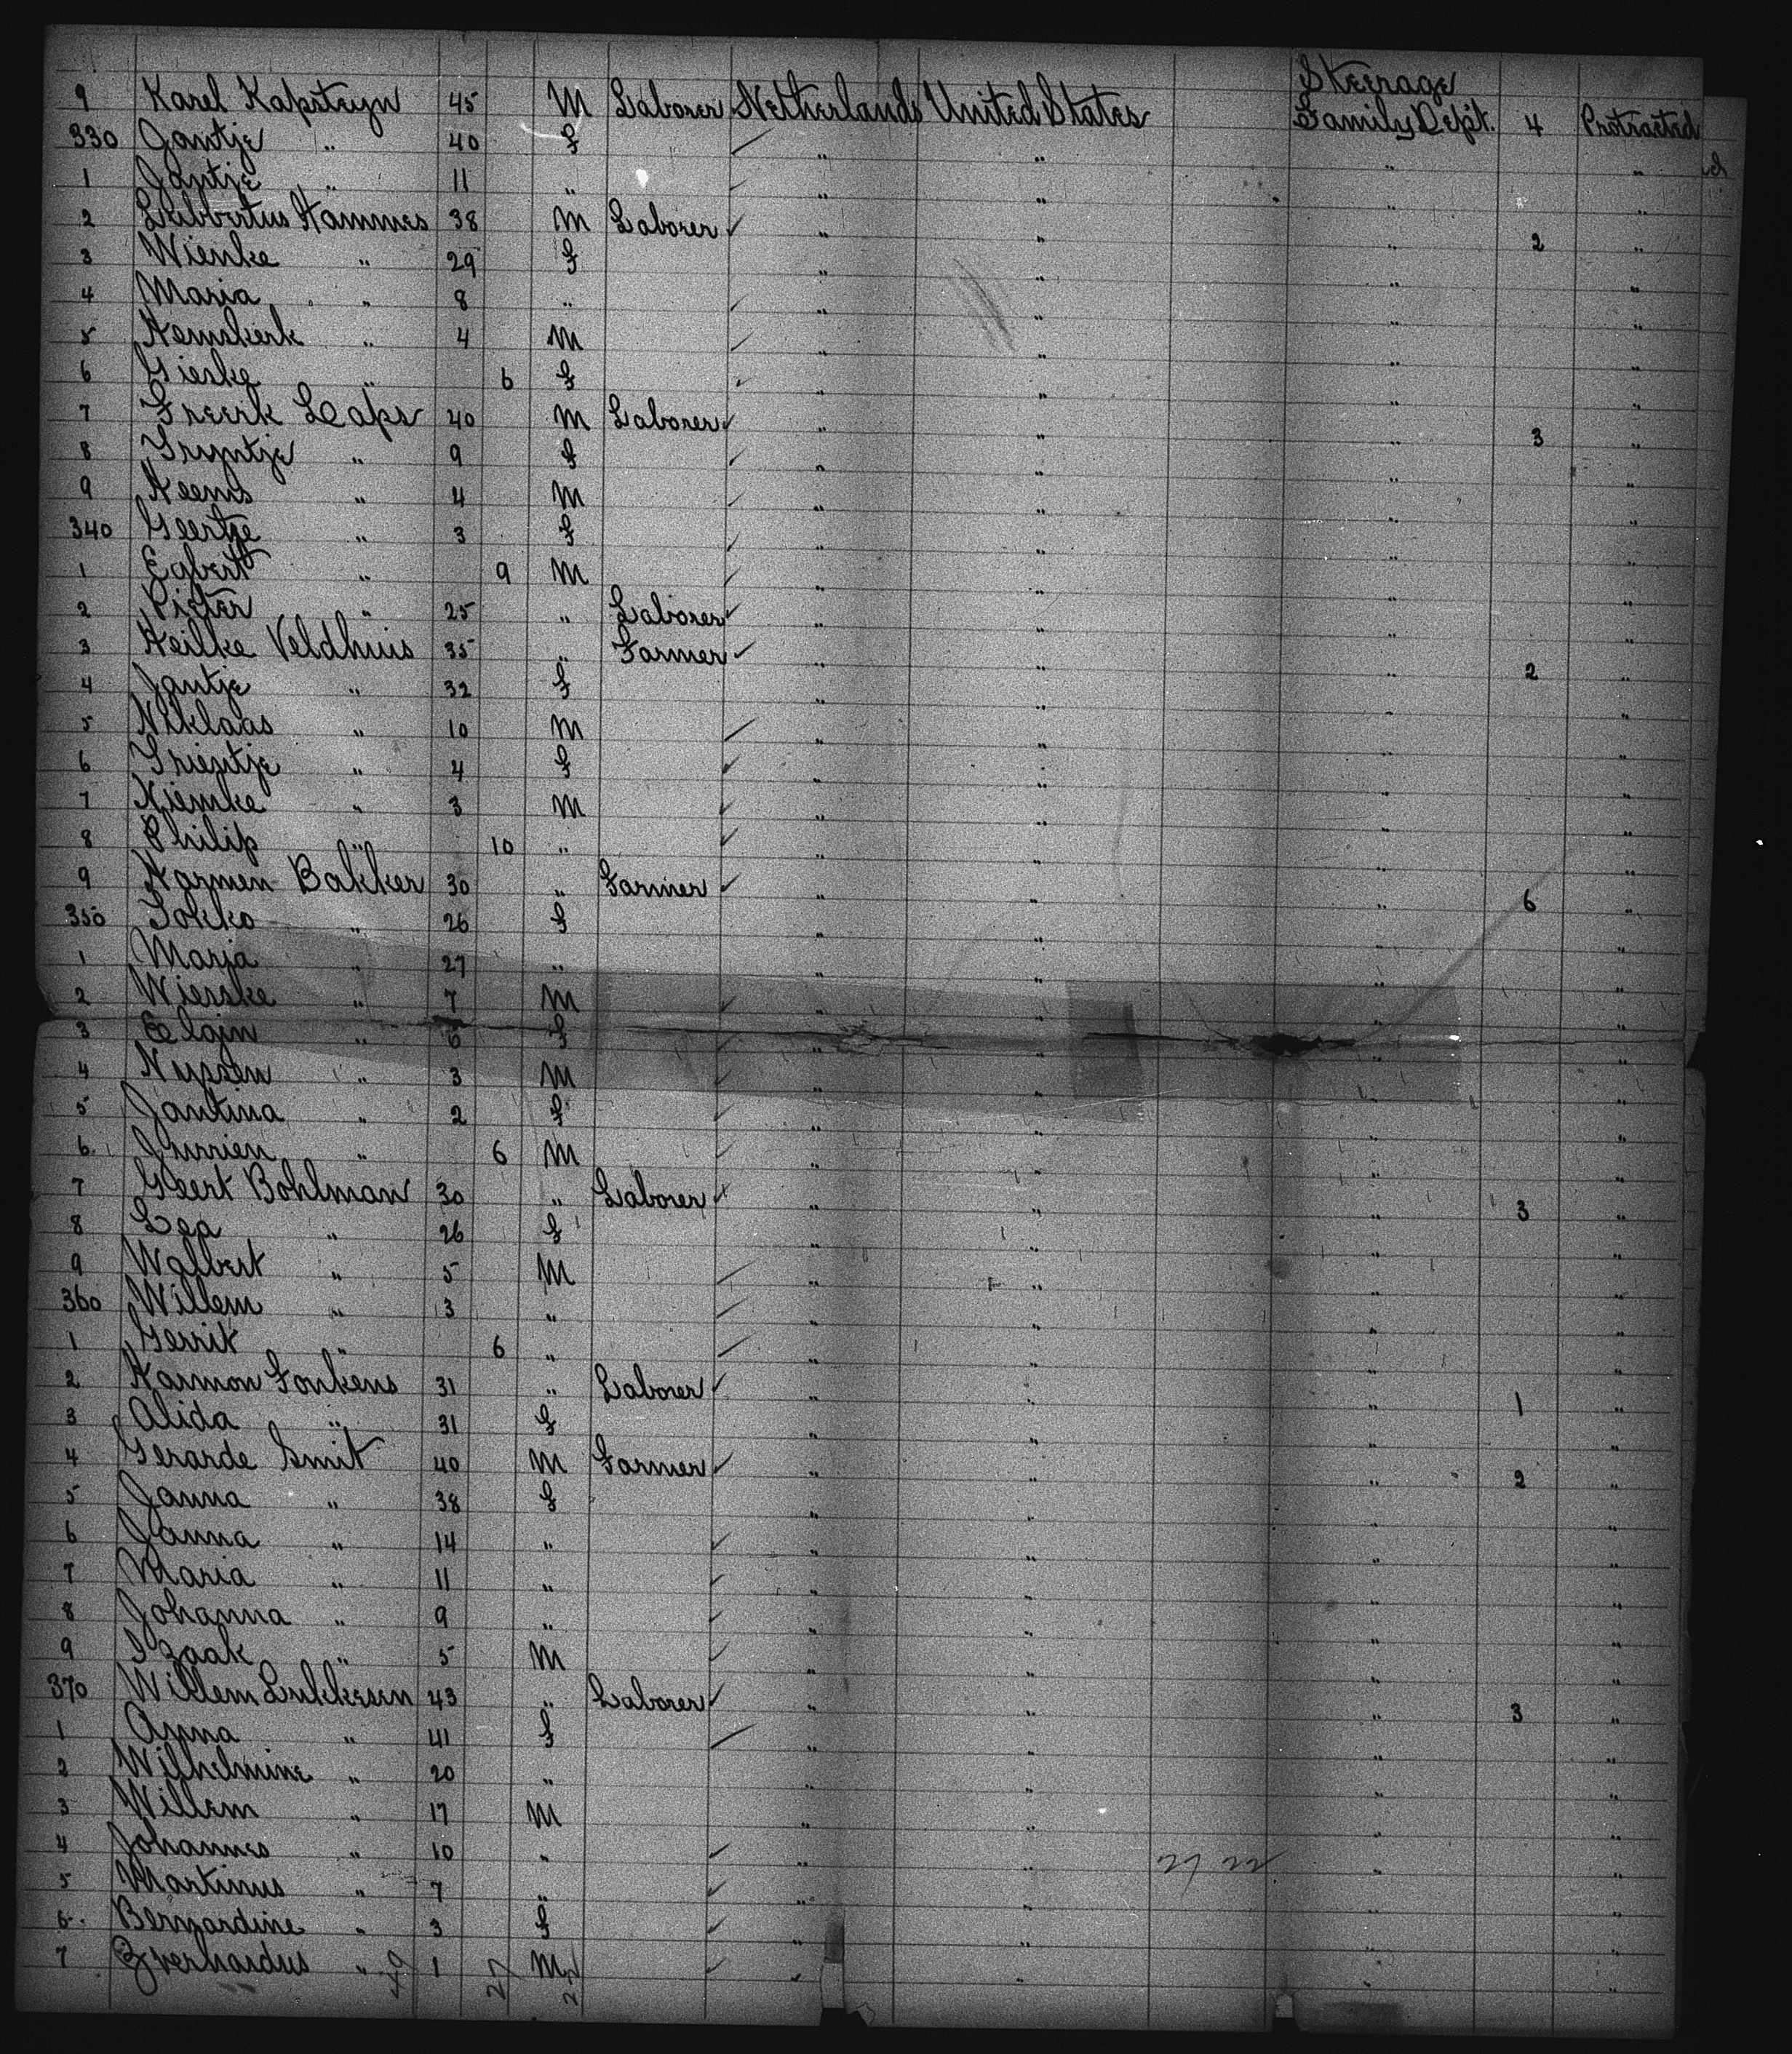 Steerage
9 Karel Kapsteyn 45 M Laborer Netherlands United States Family Dept. 4 Protracted
330 Jantje " 40 F " " " "
1 Jantje " 11 " " " " "
2 Lubbertus Hammes 38 M Laborer " " " 2 "
3 Wienke " 29 F " " " "
4 Maria " 8 " " " " "
5 Hemskerk " 4 M " " " "
6 Gieske " 6 F " " " "
7 Freerk Laps 40 M Laborer " " " 3 "
8 Tryntje " 9 F " " " "
9 Heems " 4 M " " " "
340 Geertje " 3 F " " " "
1 Egbert " 9 M " " " "
2 Pieter " 25 " Laborer " " " "
3 Heilke Veldhuis 35 " Farmer " " " 2 "
4 Jantje " 32 F " " " "
5 Niklaas " 10 M " " " "
6 Trientje " 4 F " " " "
7 Niemke " 3 M " " " "
8 Philip " 10 " " " " "
9 Harmen Bakker 30 " Farmer " " " 6 "
350 Fokko " 26 F " " " "
1 Marja " 27 " " " " "
2 Wierske " 7 M " " " "
3 " 6 F " " " "
4 " 3 M " " " "
5 Jantina " 2 F " " " "
6 Jurrien " 6 M " " " "
7 Geert Bohlman 30 " Laborer " " " 3 "
8 Lea " 26 F " " " "
9 Walbert " 5 M " " " "
360 Willem " 3 " " " " "
1 Gerrit " 6 " " " " "
2 Harmon Fonkens 31 " Laborer " " " 1 "
3 Alida " 31 F " " " "
4 Gerarde Smit 40 M Farmer " " " 2 "
5 Janna " 38 F " " " "
6 Janna " 14 " " " " "
7 Maria " 11 " " " " "
8 Johanna " 9 " " " " "
9 Izaak " 5 M " " " "
370 Willem Lukkesen 43 " Laborer " " " 3 "
1 Anna " 41 F " " " "
2 Wilhelmine " 20 " " " " "
3 Willem " 17 M " " " "
4 Johannes " 10 " " " 27 22 " "
5 Martinus " 7 " " " " "
6 Bernardine " 3 F " " " "
7 Everhardus " 49 1 27 M 22 " " " "